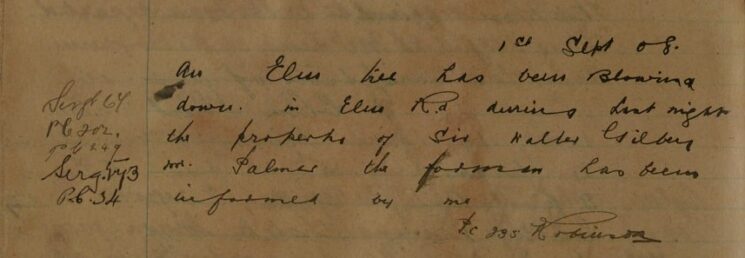 1st Sept 08.
An Elm tree has been Blowing
down. in Elm Rd during Last night
the property of Sir Walter Gilbey
mr. Palmer the forman has been
informed by me
P.C 235 Robinson
Sergt 64
P.C 202.
P.C 249
Serg.
P.C. 34